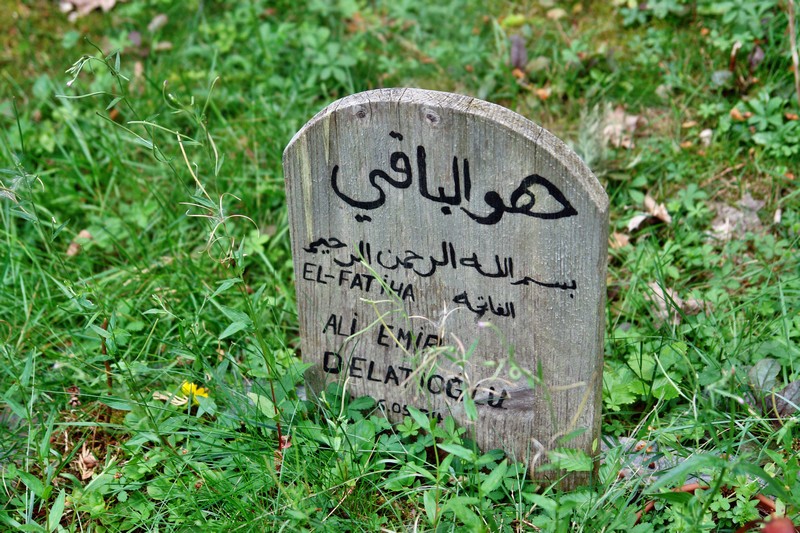 هو الباقي
بسم الله الرحمن الرحيم
EL-FATİHA الفاتحه
ALİ EMİR
DELATİOĞLU